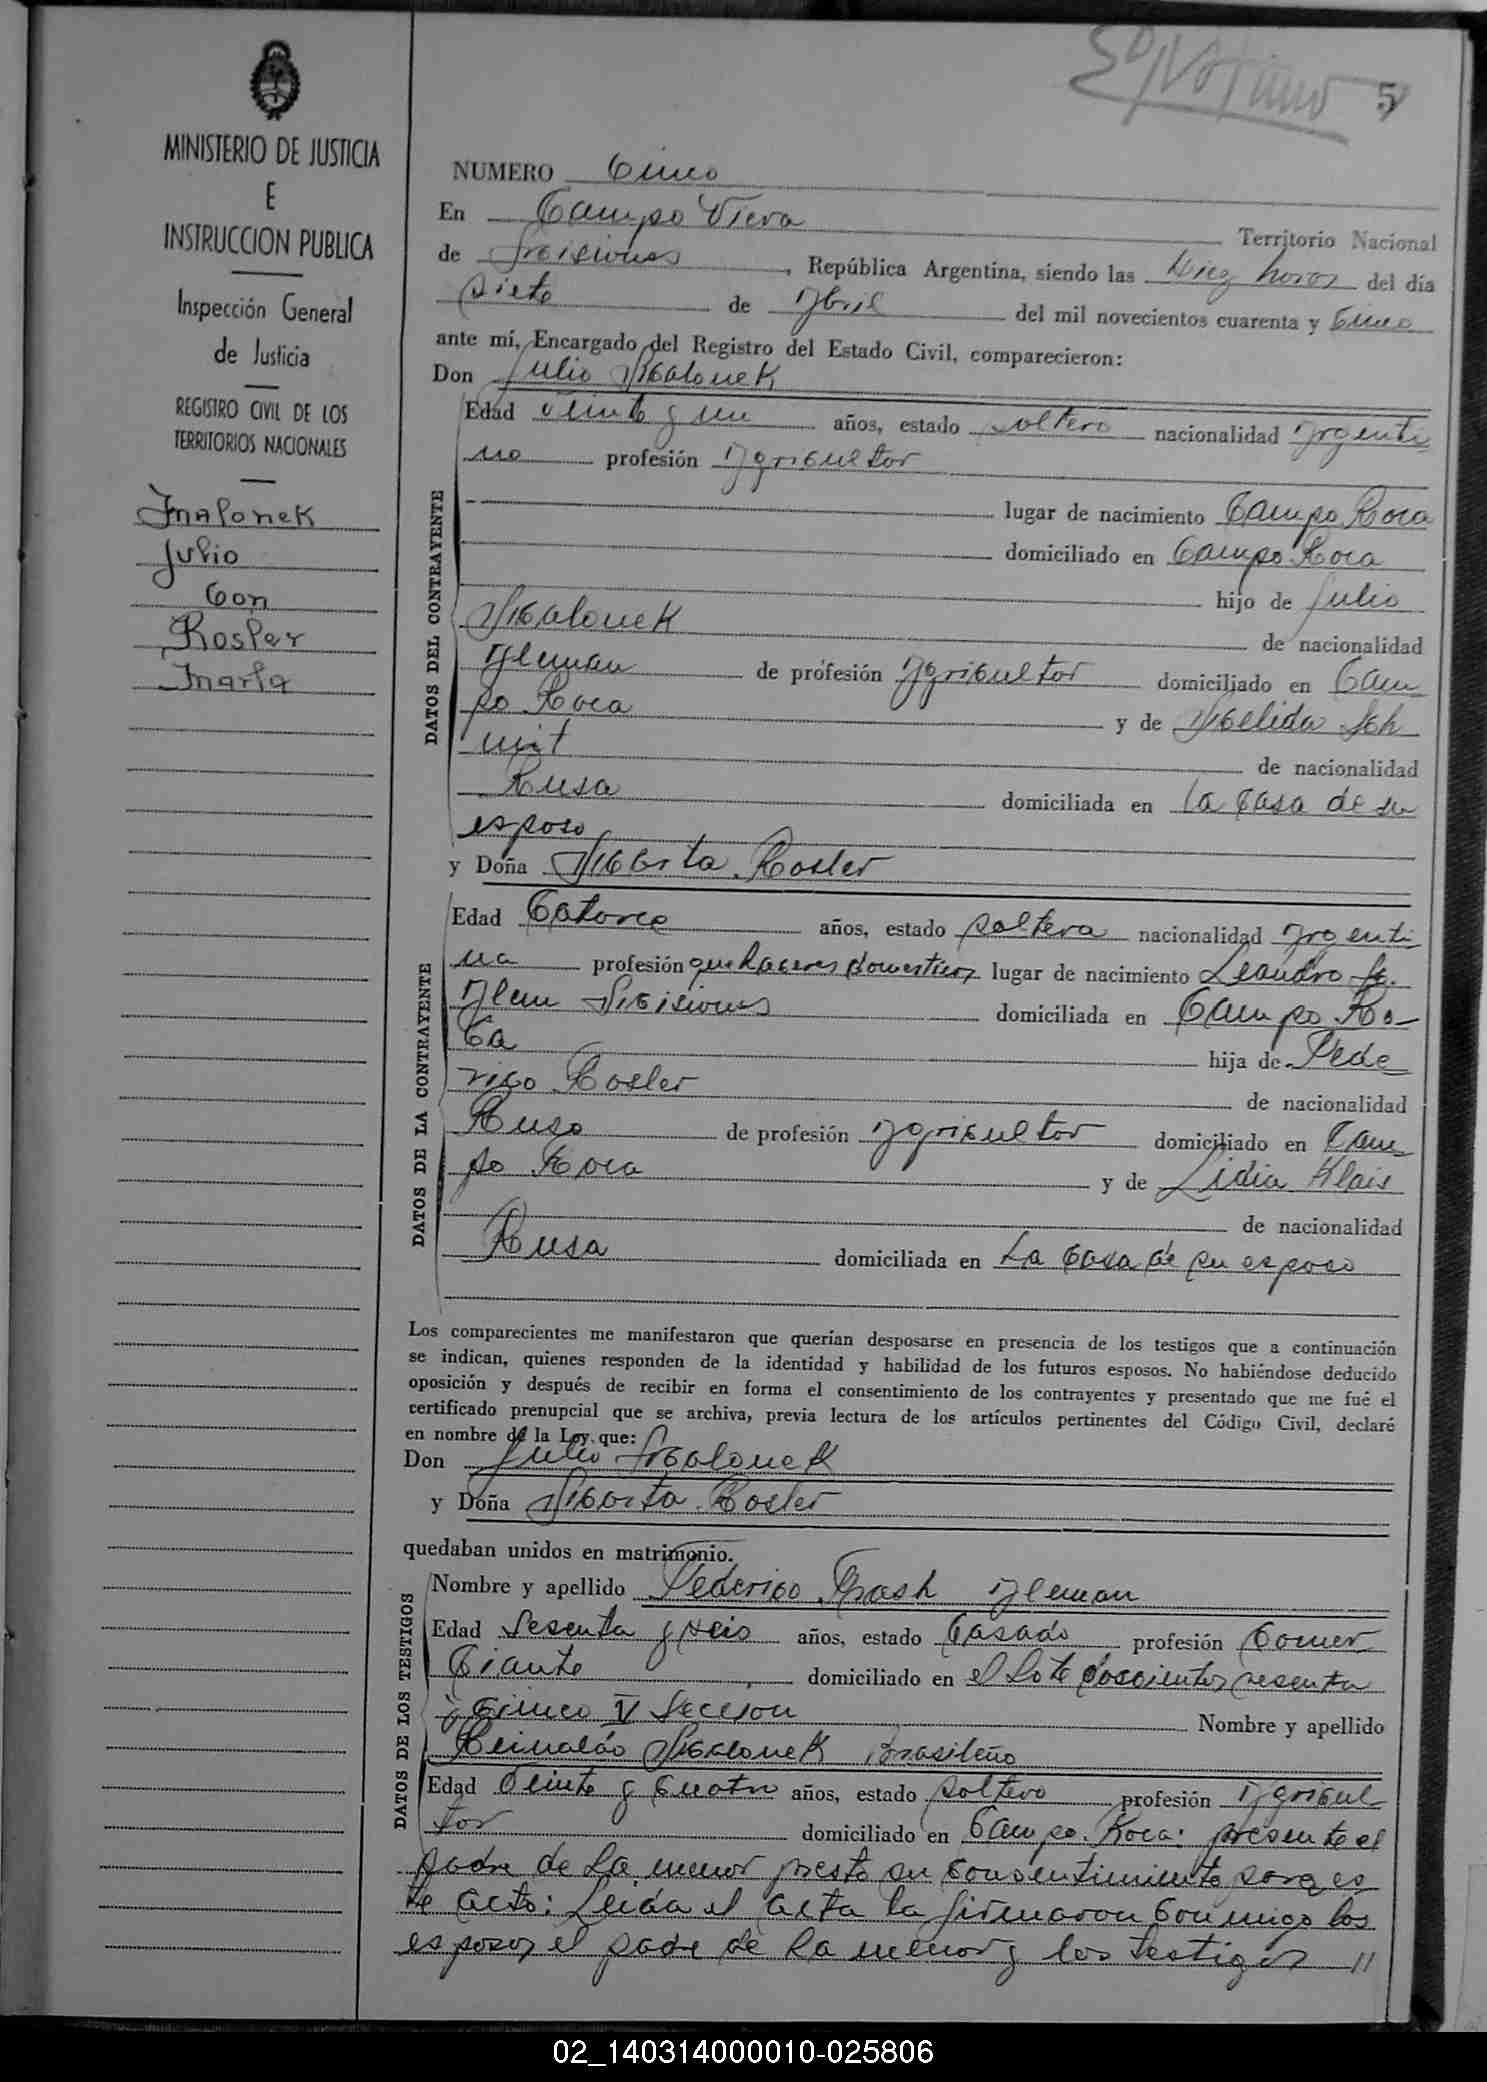 5
MINISTERIO DE JUSTICIA
E
INSTRUCCION PUBLICA
Inspección General
de Justicia
REGISTRO CIVIL DE LOS
TERRITORIOS NACIONALES
Malonek
Julio
Con
Rosler
Marta
NUMERO Cinco
En Campo Viera Territorio Nacional
de Misiones, República Argentina, siendo las Diez horas del día
siete de Abril del mil novecientos cuarenta y Cinco
ante mí, Encargado del Registro del Estado Civil, comparecieron:
Don Julio Malonek
DATOS DEL CONTRAYENTE
Edad Veinte y un años, estado soltero nacionalidad Argenti
no profesión Agricultor
lugar de nacimiento Campo Roca
domiciliado en Campo Roca
hijo de Julio
Malonek de nacionalidad
Aleman de profesión Agricultor domiciliado en Cam
po Roca y de Melida Sch
mit de nacionalidad
Rusa domiciliada en la Casa de su
esposo
y Doña Marta Rosler
DATOS DE LA CONTRAYENTE
Edad Catorce años, estado soltera nacionalidad Argenti
na profesión quehaceres domesticos lugar de nacimiento Leandro N.
Alem Misiones domiciliada en Campo Ro-
ca hija de Fede
rico Rosler de nacionalidad
Ruso de profesión Agricultor domiciliado en Cam
po Roca y de Lidia Klais
de nacionalidad
Rusa domiciliada en La Casa de su esposo
Los comparecientes me manifestaron que querían desposarse en presencia de los testigos que a continuación
se indican, quienes responden de la identidad y habilidad de los futuros esposos. No habiéndose deducido
oposición y después de recibir en forma el consentimiento de los contrayentes y presentado que me fué el
certificado prenupcial que se archiva, previa lectura de los artículos pertinentes del Código Civil, declaré
en nombre de la Ley que:
Don Julio Malonek
y Doña Marta Rosler
quedaban unidos en matrimonio.
DATOS DE LOS TESTIGOS
Nombre y apellido Federico Aleman
Edad Sesenta y seis años, estado Casado profesión Comer
ciante domiciliado en el Lote doscientos sesenta
y Cinco V Seccion Nombre y apellido
Reinaldo Malonek Brasileño
Edad Veinte y Cuatro años, estado soltero profesión Agricul
tor domiciliado en Campo Roca: presente el
padre de la menor presto su Consentimiento para es
te acto: Leida el acta la firmaron Conmigo los
esposos el padre de la menor y los testigos //
02_140314000010-025806